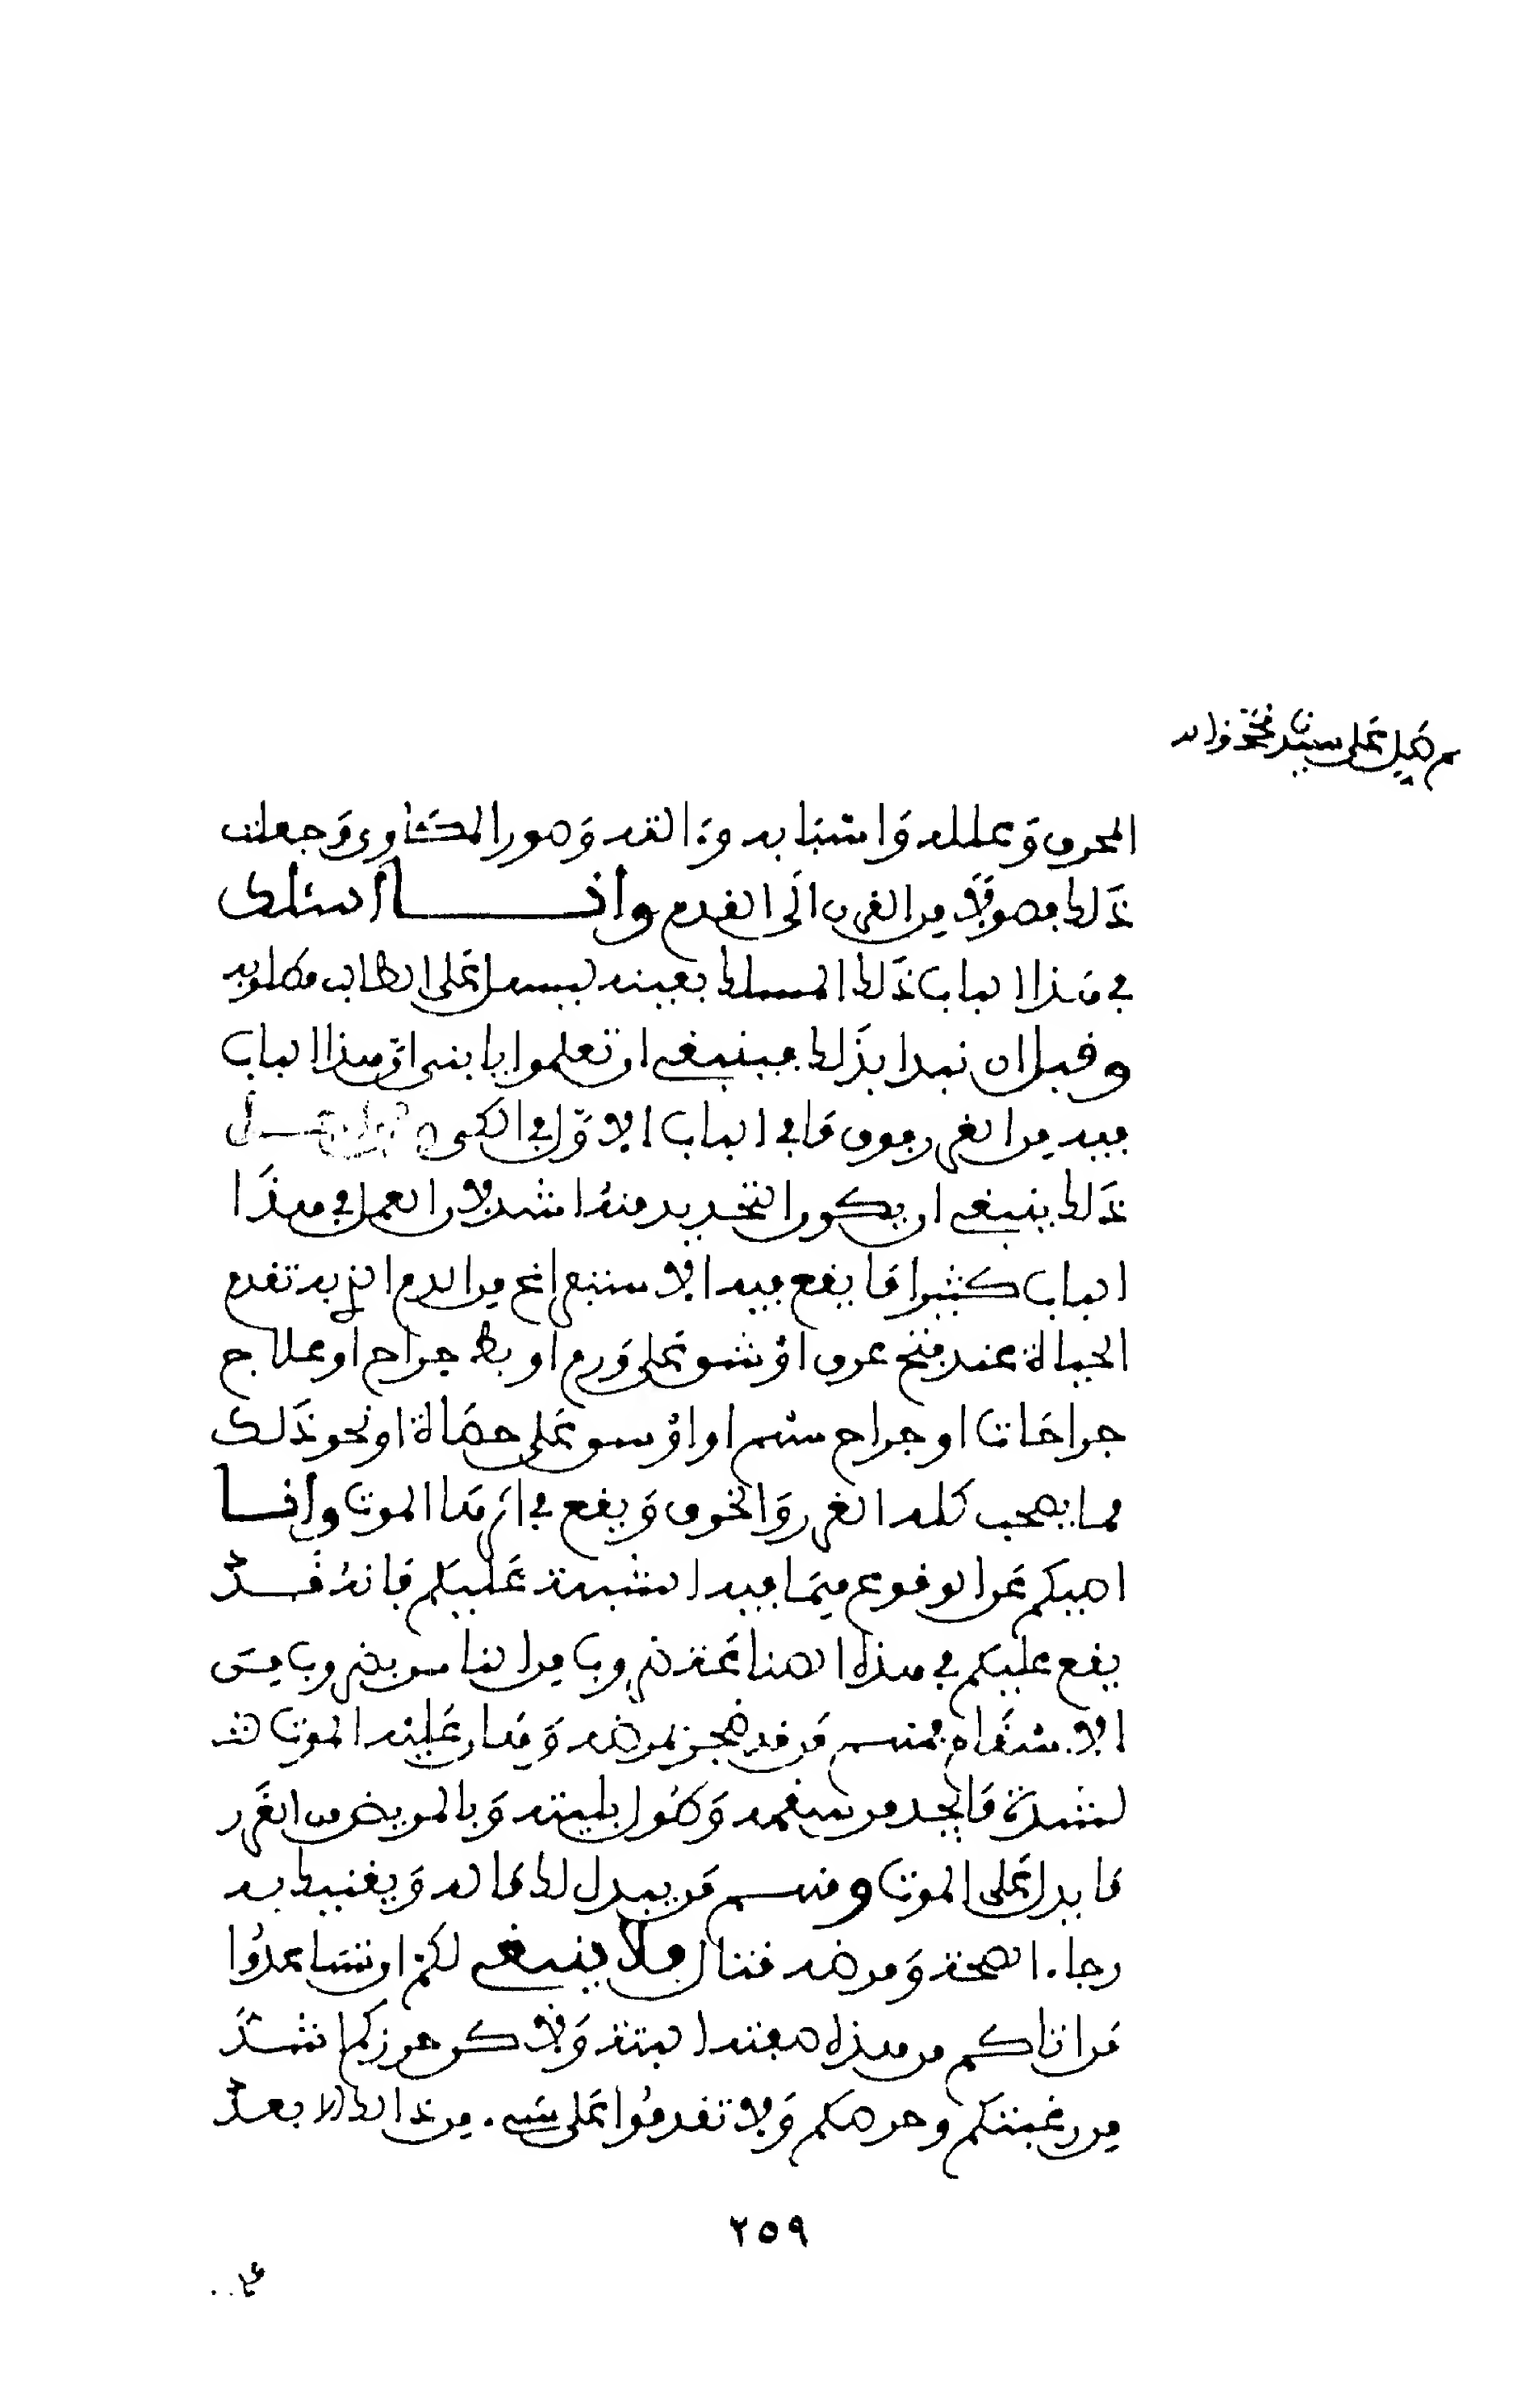 صل على سيدنا محمد واله
المحرق وعلله واسبابه وءالته وصور المكاوى وجعلت
ذلك فصولا من القرن الى القدم وانا اسلك
في هذا الباب ذلك المسلك بعينه ليسهل على الطالب مطلوبه
وقبل ان نبدا بذلك فينبغي ان تعلموا يا بني ان هذا الباب
فيه من الغرر فوق ما في الباب الاول في الكي
ذلك ينبغي ان يكون التحذير منه اشد لان العمل في هذا
الباب كثيرا ما يقع فيه الاستفراغ من الدم الذي به تقوم
الحياة عند فتح عرق او شق على ورم او بط خراج او علاج
جراحات او اخراج سهم او شق على حصاة او نحو ذلك
مما يصحب كله الغرر والخوف ويقع في اكثرها الموت وانا
اوصيكم عن الوقوع فيما فيه الشبهة عليكم فانه قد
يقع عليكم في هذه الصناعة ضروب من الناس بضروب من
الاسقام فمنهم من قد ضجر بمرضه وهان عليه الموت
لشدة ما يجد من سقمه وطول بليته وبالمرض من الغرر
ما يدل على الموت ومنهم من يبذل لك ماله ويغنيك به
رجاء الصحة ومرضه قتال فلا ينبغي لكم ان تساعدوا
من اتاكم من هذه صفته البتة وليكن حذركم اشد
من رغبتكم وحرصكم ولا تقدموا على شيء من ذلك الا بعد
٢٥٩